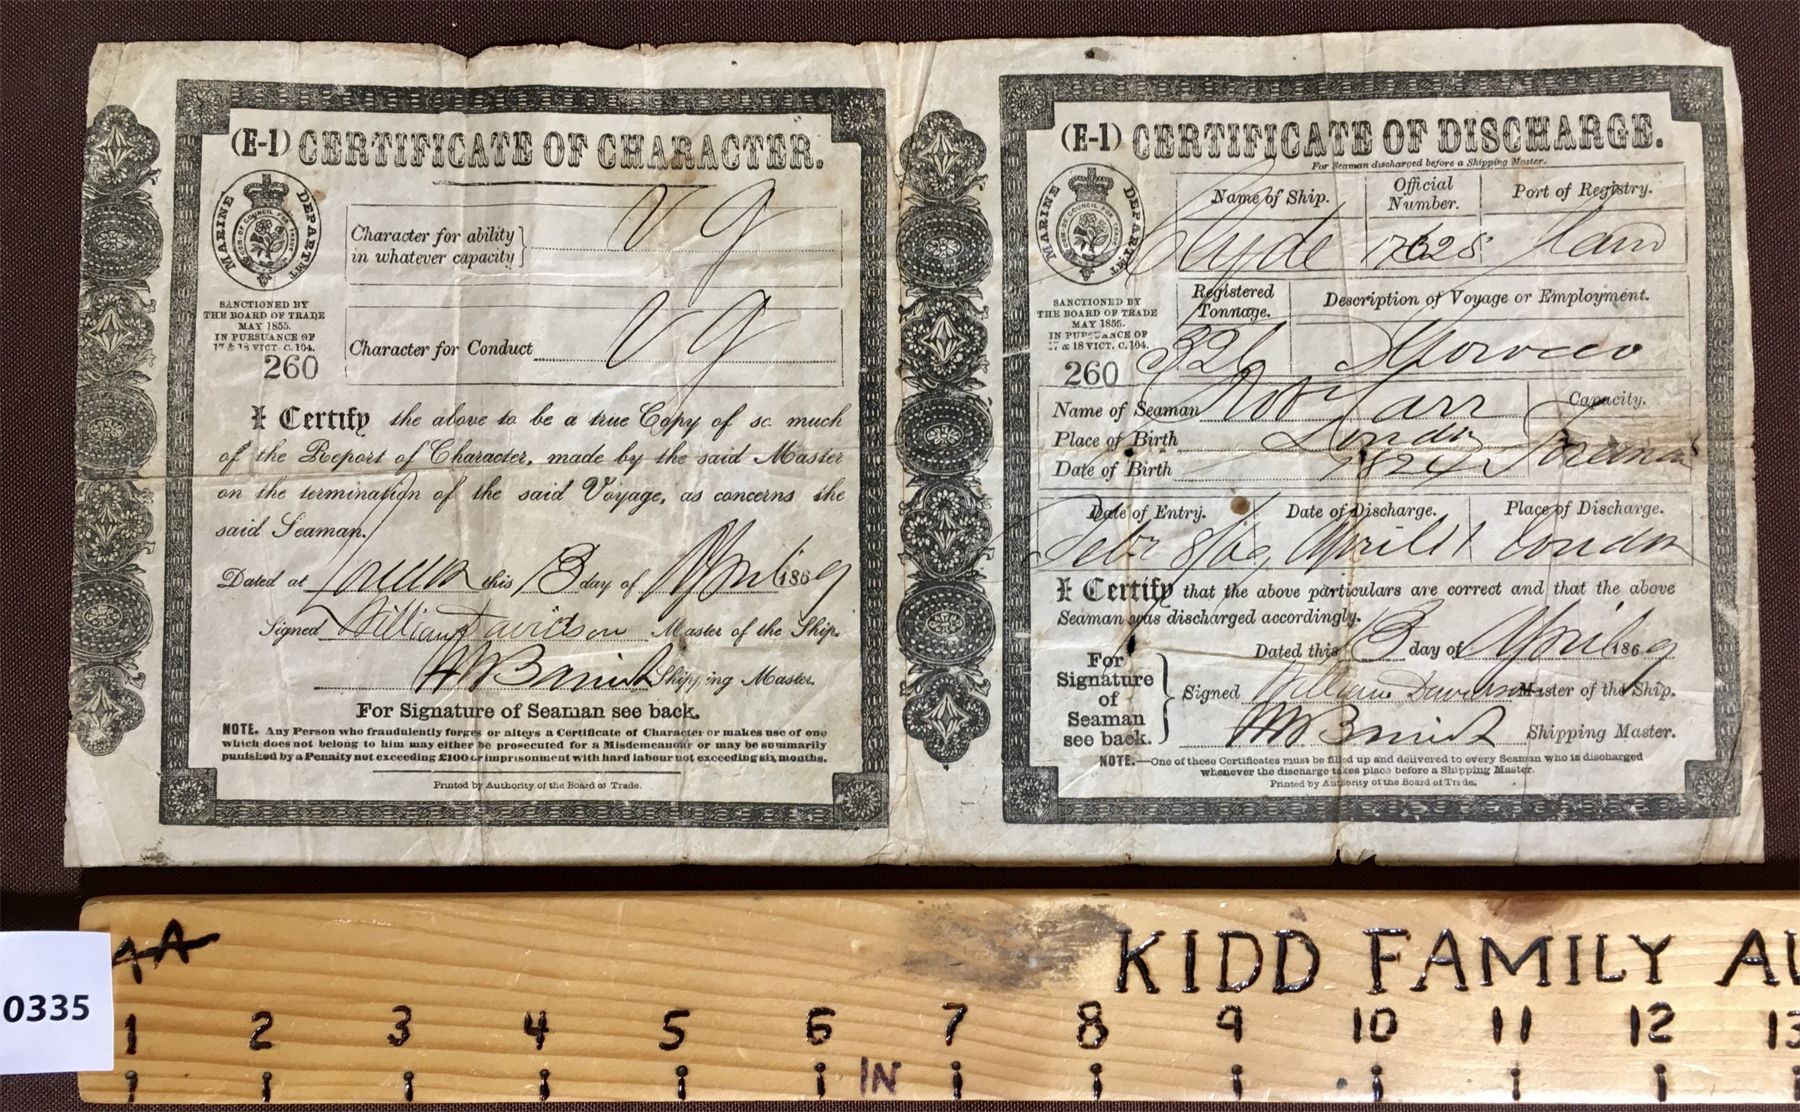 (E-1) CERTIFICATE OF CHARACTER.
MARINE DEPARTMT
SANCTIONED BY
THE BOARD OF TRADE
MAY 1855.
IN PURSUANCE OF
17 & 18 VICT. C. 104.
260
Character for ability
in whatever capacity
V G
Character for Conduct
V G
I Certify the above to be a true Copy of so much
of the Report of Character, made by the said Master
on the termination of the said Voyage, as concerns the
said Seaman.
Dated at London this 13 day of April 1869
Signed William Davidson Master of the Ship.
Shipping Master.
For Signature of Seaman see back.
NOTE. Any Person who fraudulently forges or alters a Certificate of Character or makes use of one
which does not belong to him may either be prosecuted for a Misdemeanour or may be summarily
punished by a Penalty not exceeding £100 or imprisonment with hard labour not exceeding six months.
Printed by Authority of the Board of Trade.
(E-1) CERTIFICATE OF DISCHARGE.
For Seaman discharged before a Shipping Master.
MARINE DEPARTMT
SANCTIONED BY
THE BOARD OF TRADE
MAY 1855.
IN PURSUANCE OF
17 & 18 VICT. C. 104.
260
Name of Ship. Official Number. Port of Registry.
Clyde 17625
Registered Tonnage. Description of Voyage or Employment.
326 Morocco
Name of Seaman Robt Carr Capacity.
Place of Birth London
Date of Birth 1824 Fireman
Date of Entry. Date of Discharge. Place of Discharge.
Febr 8/69 April 11 London
I Certify that the above particulars are correct and that the above
Seaman was discharged accordingly.
Dated this 13 day of April 1869
For
Signature
of
Seaman
see back.
Signed William Davidson Master of the Ship.
Shipping Master.
NOTE.—One of these Certificates must be filled up and delivered to every Seaman who is discharged
whenever the discharge takes place before a Shipping Master.
Printed by Authority of the Board of Trade.
KIDD FAMILY AU
0335
1 2 3 4 5 6 7 8 9 10 11 12 13
IN